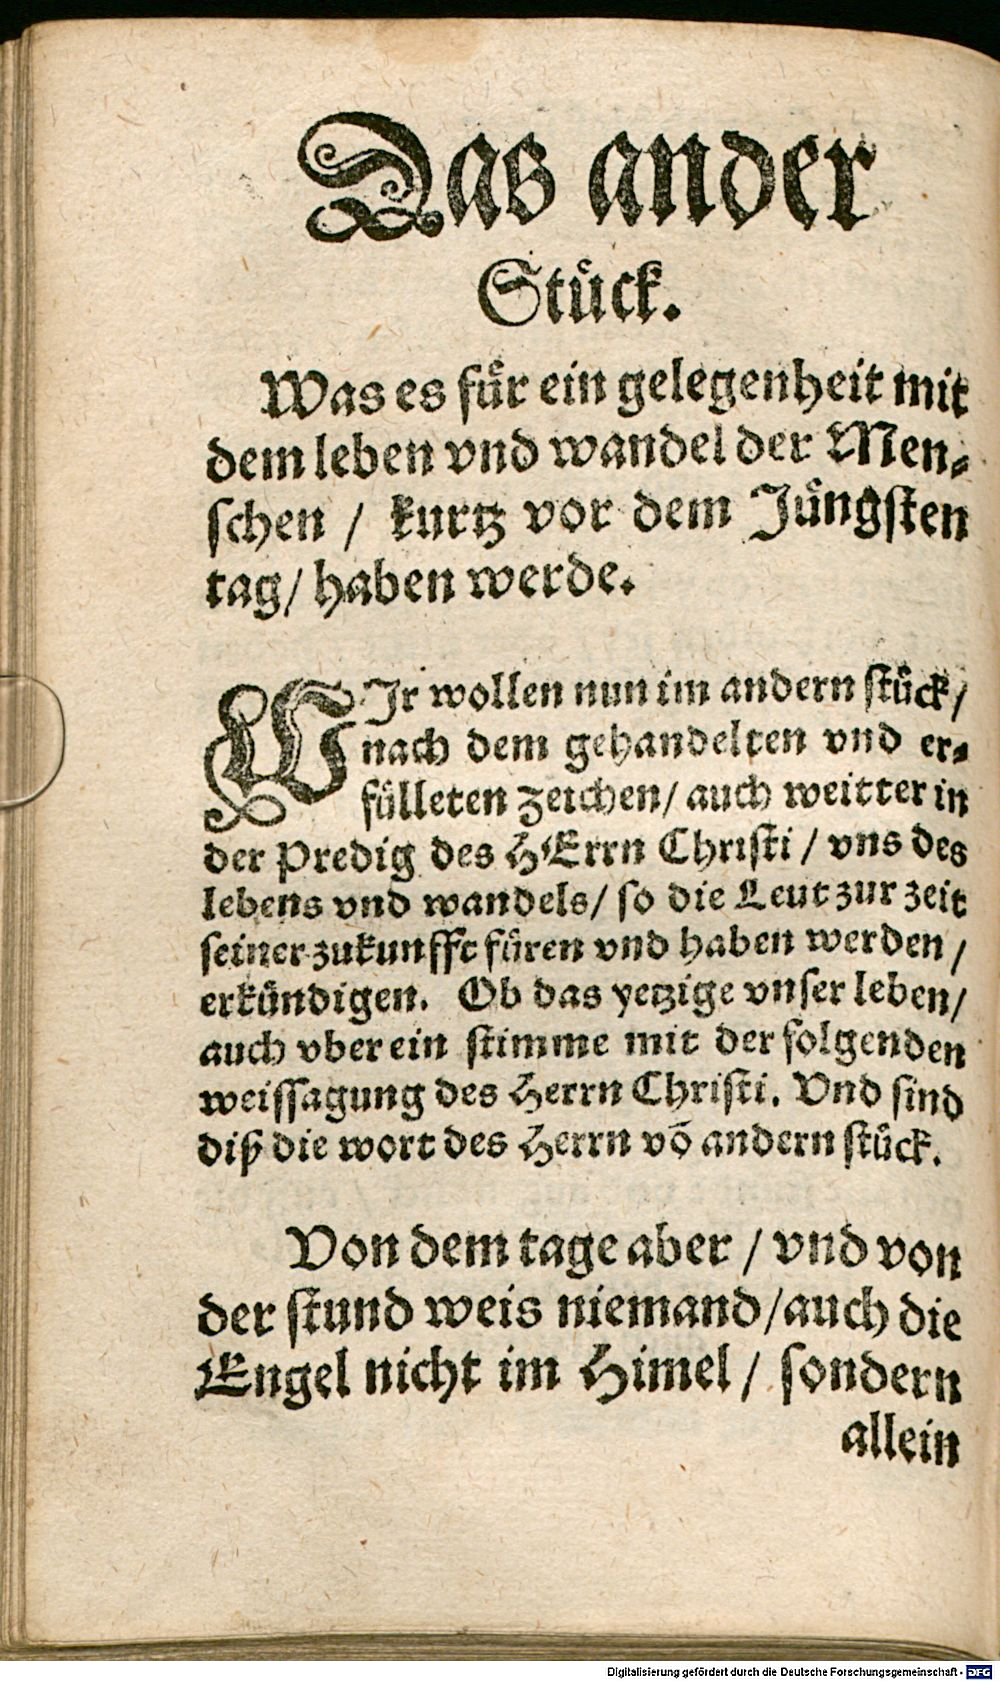 Das ander
Stuͤck.
Was es fuͤr ein gelegenheit mit
dem leben vnd wandel der Men⸗
schen / kurtz vor dem Juͤngsten
tag/ haben werde.
WIr wollen nun im andern stuͤck/
nach dem gehandelten vnd er⸗
fuͤlleten zeichen/ auch weitter in
der Predig des HErrn Christi / vns des
lebens vnd wandels/ so die Leut zur zeit
seiner zukunfft fuͤren vnd haben werden /
erkuͤndigen. Ob das yetzige vnser leben/
auch vber ein stimme mit der folgenden
weissagung des Herrn Christi. Vnd sind
diß die wort des Herrn võ andern stuͤck.
Von dem tage aber / vnd von
der stund weis niemand/auch die
Engel nicht im Himel / sondern
allein
Digitalisierung gefördert durch die Deutsche Forschungsgemeinschaft - DFG